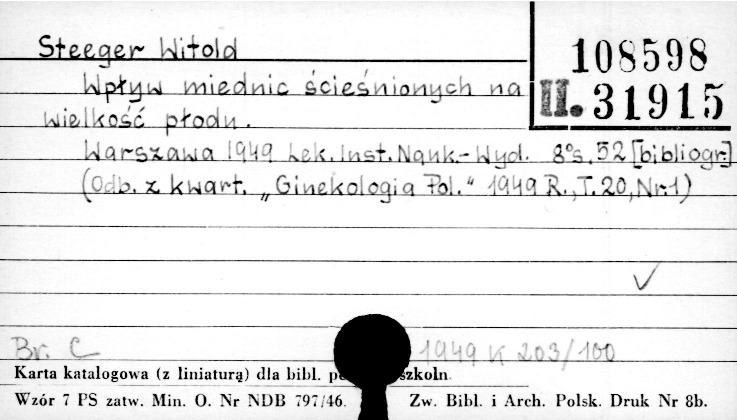 Steeger Witold
108598
Wpływ miednic ścieśnionych na
II. 31915
wielkość płodu.
Warszawa 1949 Lek. Inst. Nauk.-Wyd. 8°s. 52 [bibliogr.]
(Odb. z kwart. „Ginekologia Pol." 1949 R., T. 20, Nr. 1)
Br. C
1949 K 203/100
Karta katalogowa (z liniaturą) dla bibl. szkoln.
Wzór 7 PS zatw. Min. O. Nr NDB 797/46. Zw. Bibl. i Arch. Polsk. Druk Nr 8b.